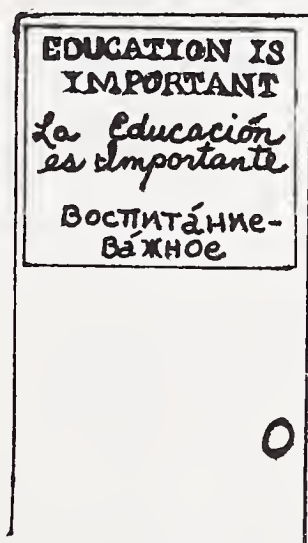 EDUCATION IS
IMPORTANT
La Educación
es Importante
Воспита́ние-
Ва́жное